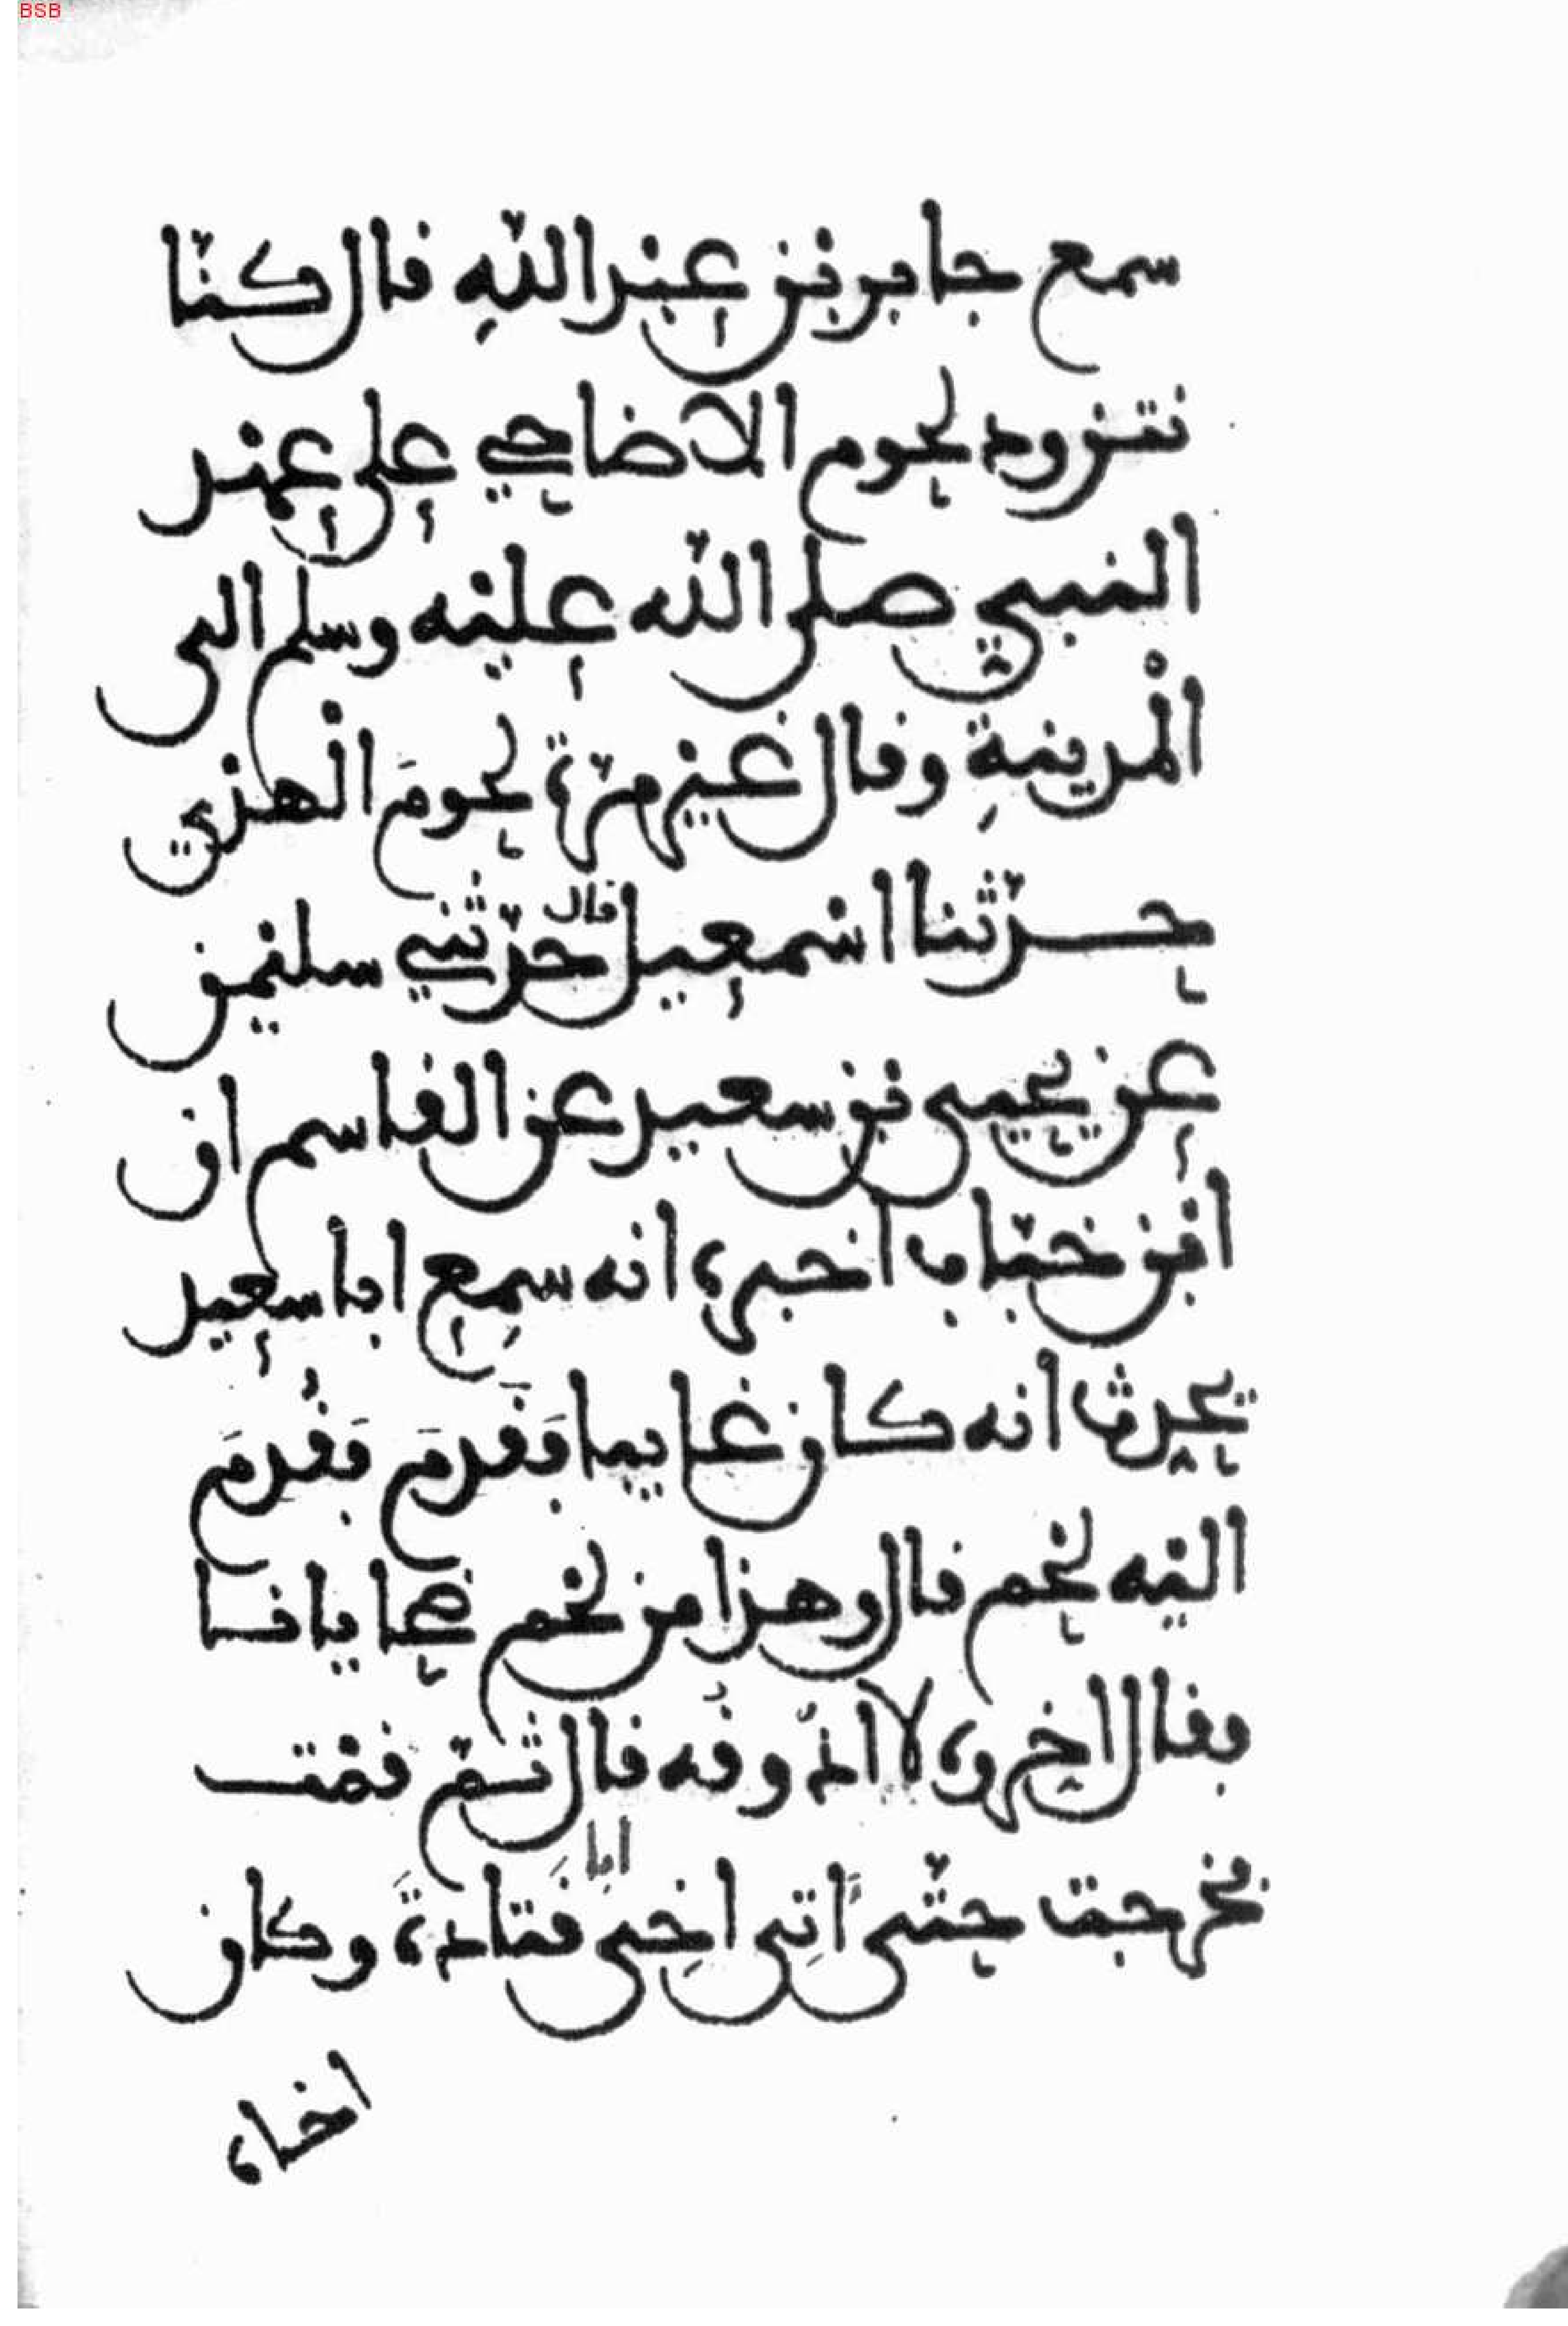 BSB
سمع جابر بن عبد الله قال كنّا
نتزود لحوم الاضاحي على عهد
النبي صلى الله عليه وسلم الى
الْمدينةِ وقال غير مرّة لحومَ الْهدْي
حدّثنا اسْمعيل قال حدّثني سليْمن
عن يحيى بن سعيد عن القاسم ان
ابْن خبّاب اخبره انه سمِع ابا سعيد
يحدث انه كان غايبا فَقَدِمَ فَقُدِمَ
اليْه لحْم قال وهذا من لحْم ضحايانا
فقال اخِّروه لا اذُوقُه قال ثمّ قمْت
فخرجت حتّى اتِى اخِى ابا قَتَادةَ وكان
اخاه